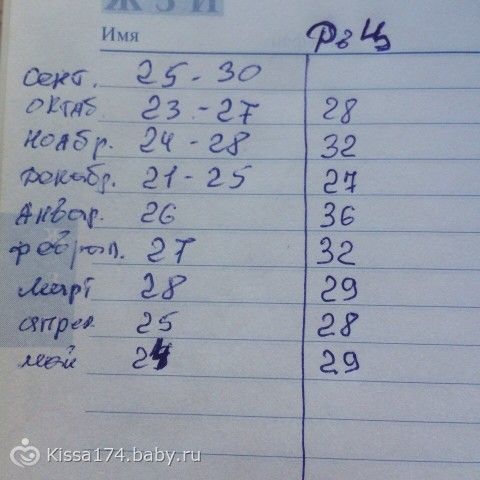 Ж З И
Имя РзЦ
Сент. 25-30
октаб. 23-27 28
ноабр. 24-28 32
Декабр. 21-25 27
Анвар. 26 36
феврал. 27 32
март 28 29
апрел 25 28
май 24 29
Kissa174.baby.ru